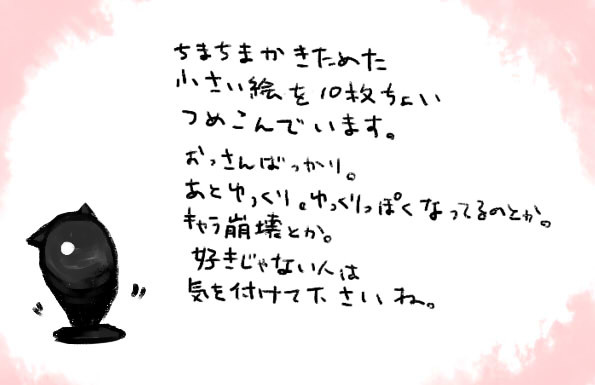 ちまちまかきためた
小さい絵を10枚ちょい
つめこんでいます。
おっさんばっかり。
あとゆっくり。ゆっくりっぽくなってるのとか。
キャラ崩壊とか。
好きじゃない人は
気を付けて下さいね。